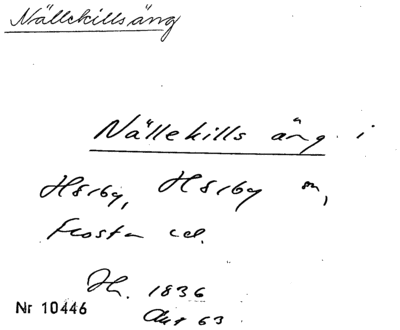 Nällekillsäng
Nällekills äng i
Hörby, Hörby sn,
Frosta hd.
Jh. 1836
Nr 10446
Akt 63